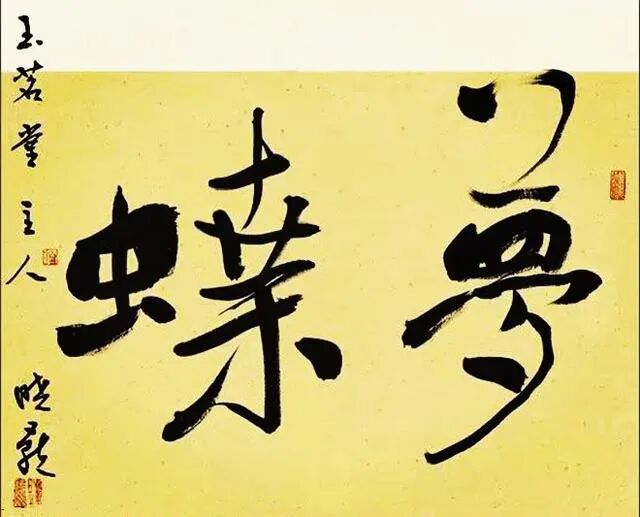 夢蝶
玉茗堂主人
晓龙